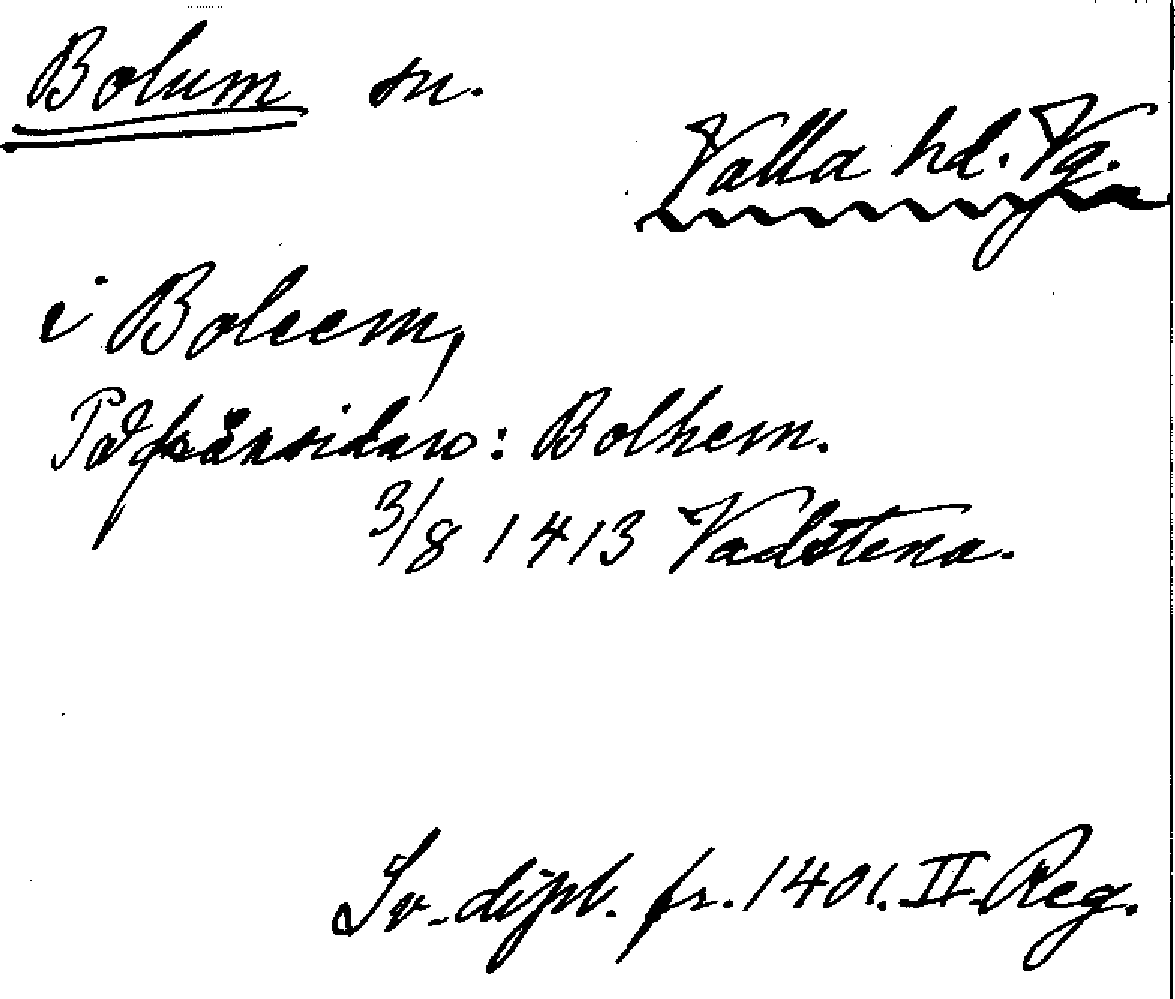 Bolum sn.
Valla hd. Vg.
i Boleem,
På frånsidan: Bolhem.
3/8 1413 Vadstena.
Sv. dipl. fr. 1401. II. Reg.